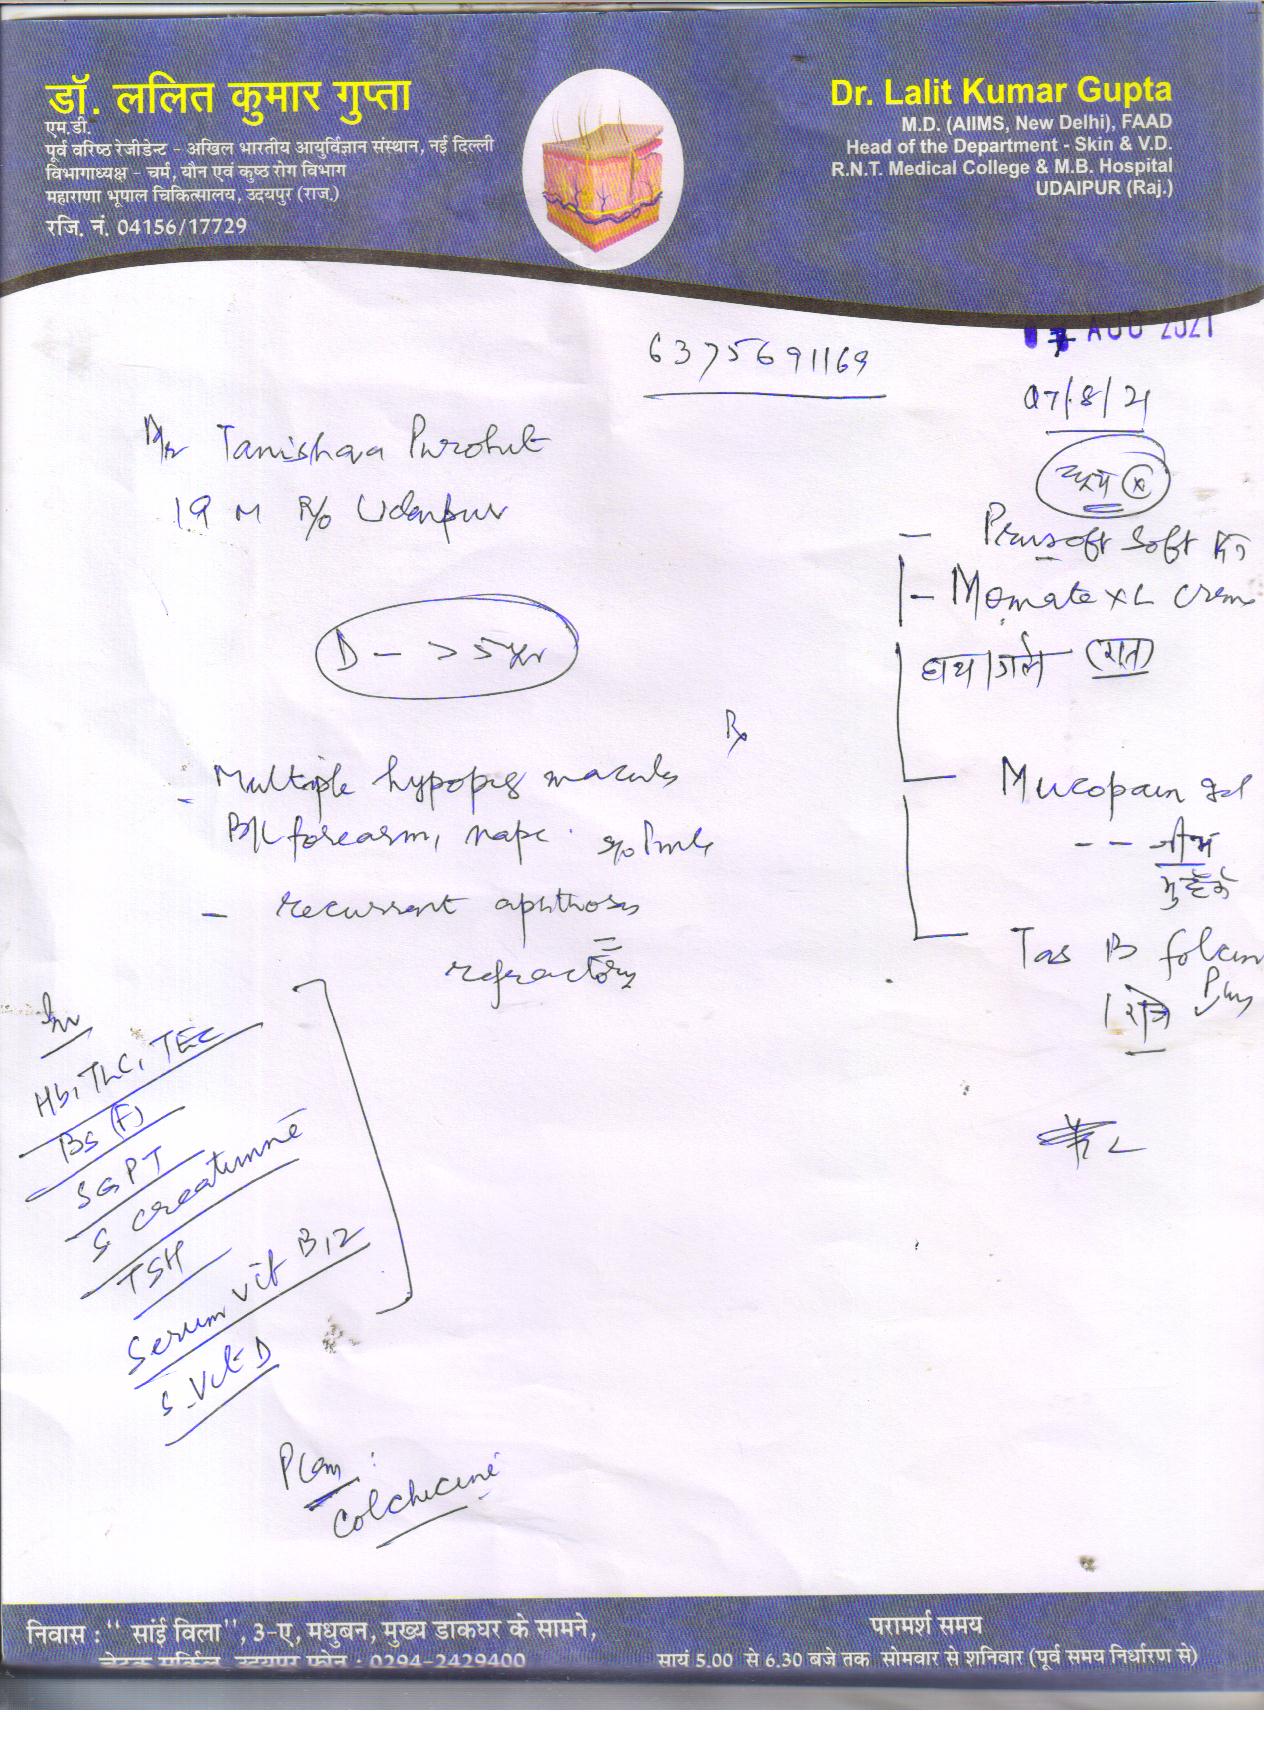 डॉ. ललित कुमार गुप्ता
एम.डी.
पूर्व वरिष्ठ रेजीडेन्ट - अखिल भारतीय आयुर्विज्ञान संस्थान, नई दिल्ली
विभागाध्यक्ष - चर्म, यौन एवं कुष्ठ रोग विभाग
महाराणा भूपाल चिकित्सालय, उदयपुर (राज.)
रजि. नं. 04156/17729
Dr. Lalit Kumar Gupta
M.D. (AIIMS, New Delhi), FAAD
Head of the Department - Skin & V.D.
R.N.T. Medical College & M.B. Hospital
UDAIPUR (Raj.)
AUG 2021
6375691169
07/8/21
Tanishqa Purohit
19 M R/o Udaipur
D - > 5 yr
- Multiple hypopig macules
B/L forearm, nape
- recurrent aphthosis
refractory
Rx
soft
- Momate XL Creme
हाथ/गले (रात)
Mucopain gel
-- जीभ
मुहँ के
B folcin
Plus
1 रात्रि
Inv
Hb, TLC, TEC
BS (F)
SGPT
S creatinine
TSH
Serum vit B12
S. Vit D
Plan:
Colchicine
निवास : "सांई विला", ३-ए, मधुबन, मुख्य डाकघर के सामने,
चेटक सर्किल, उदयपुर फोन : 0294-2429400
परामर्श समय
सायं 5.00 से 6.30 बजे तक सोमवार से शनिवार (पूर्व समय निर्धारण से)